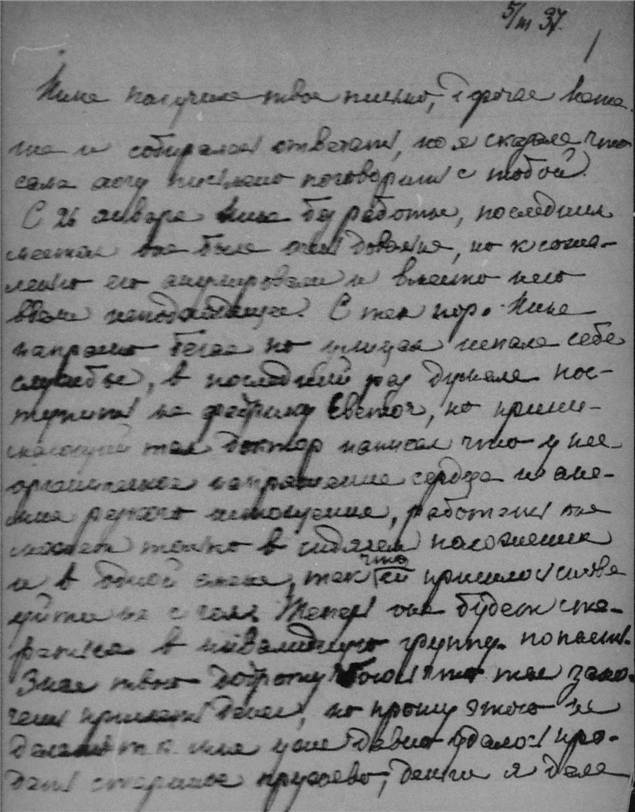 5/III 37.
Нина получила твое письмо, дорогая
и собиралась отвечать, но я сказала что
сама могу письменно поговорить с тобой.
С 26 января Нина без работы, последним
местом она была очень довольна, но к сожа-
лению его анулировали и вместо него
ввели неподходящее. С тех пор Нина
напрасно бегала по улицам искала себе
службы, в последний раз думала пос-
тупить на фабрику Светоч, но прини-
мающий там доктор написал что у нее
органическое напряжение сердца и
резкого истощения, работать она
может только в сидячем положении
и в одной смене, так что ей пришлось снова
уйти ни с чем. Теперь она будет ста-
раться в инвалидную группу попасть.
Зная твою доброту боюсь что ты захо-
чешь прислать денег, но прошу этого не
делать т.к. мне уже давно удалось про-
дать старинное кружево, деньги я дала